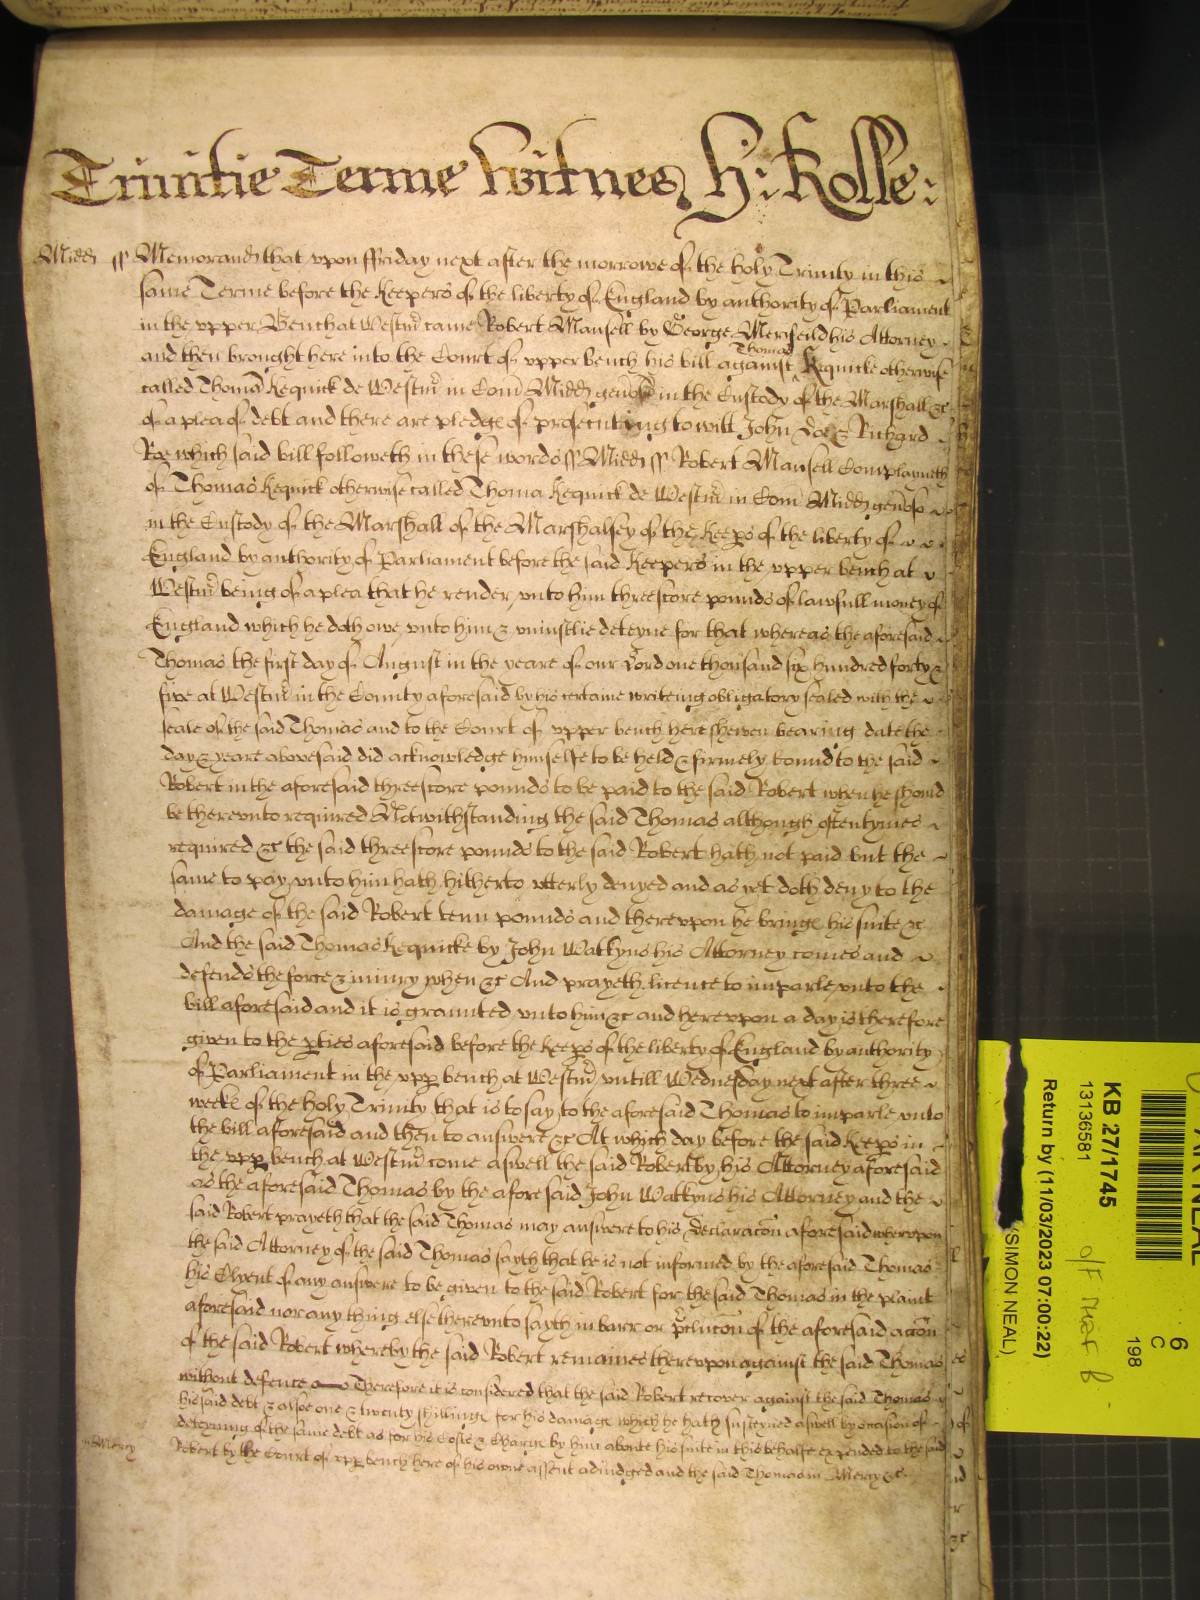 Trinitie Terme Witnes H: Rolle:
Midd ss Memorand that upon ffriday next after the morrowe of the holy Trinity in this
same Terme before the Keepers of the liberty of England by authority of Parliament
in the upper Bench at Westm came Robert Mansell by George Merifeild his Attorney
and then brought here into the Court of upper bench his bill against Thomas Kequicke otherwise
called Thoma Kequick de Westm in Com Midd genoso in the Custody of the Marshall &c
of a plea of debt and there are pledge of prosecuting to witt John Doe & Richard
Roe which said bill followeth in these words ss Midd ss Robert Mansell Complayneth
of Thomas Kequick otherwise called Thoma Kequick de Westm in Com Midd genoso
in the Custody of the Marshall of the Marshalsey of the Keeps of the liberty of
England by authority of Parliament before the said Keepers in the upper bench at
Westm being of a plea that he render unto him threescore pounds of lawfull money of
England which he doth owe unto him & uniustlie deteyne for that whereas the aforesaid
Thomas the first day of August in the yeare of our Lord one thousand six hundred forty &
five at Westm in the County aforesaid by his certaine writeing obligatory sealed with the
seale of the said Thomas and to the Court of upper bench here shewen bearing date the
day & yeare abovesaid did acknowledge himselfe to be held & firmely bound to the said
Robert in the aforesaid threescore pounds to be paid to the said Robert when he should
be thereunto required Notwithstanding the said Thomas although oftentymes
required &c the said threescore pounds to the said Robert hath not paid but the
same to pay unto him hath hitherto utterly denyed and as yet doth deny to the
damage of the said Robert tenn pounds and thereupon he bringe his suite &c
And the said Thomas Kequicke by John Watkyns his Attorney comes and
defends the force & iniury when &c And prayeth licence to imparle unto the
bill aforesaid and it is graunted unto him &c and hereupon a day is therefore
given to the pties aforesaid before the Keeps of the liberty of England by authority
of Parliament in the upp bench at Westm untill Wednesday next after three
weeke of the holy Trinity that is to say to the aforesaid Thomas to imparle unto
the bill aforesaid and then to answere &c At which day before the said Keeps in
the upp bench at Westm come aswell the said Robert by his Attorney aforesaid
as the aforesaid Thomas by the afore said John Watkyns his Attorney and the
said Robert prayeth that the said Thomas may answere to his Declaracon aforesaid whereupon
the said Attorney of the said Thomas sayth that he is not informed by the aforesaid Thomas
his Clyent of any answere to be given to the said Robert for the said Thomas in the plaint
aforesaid nor any thing else thereunto sayth in barr or pclucon of the aforesaid accon
of the said Robert whereby the said Robert remaines thereupon against the said Thomas
without defence Therefore it is considered that the said Robert recover against the said Thomas
his said debt & alsoe one & twenty shillinge for his damage which he hath susteyned aswell by occasion of
deteyning of the same debt as for his Costs & Charge by him aboute his suite in this behalfe expended to the said
in Mercy Robert by the Court of upp bench here of his owne assent adiudged and the said Thomas in Mercy &c
KB 27/1745
13136581
Return by (11/03/2023 07:00:22)
(SIMON NEAL)
6
C
198